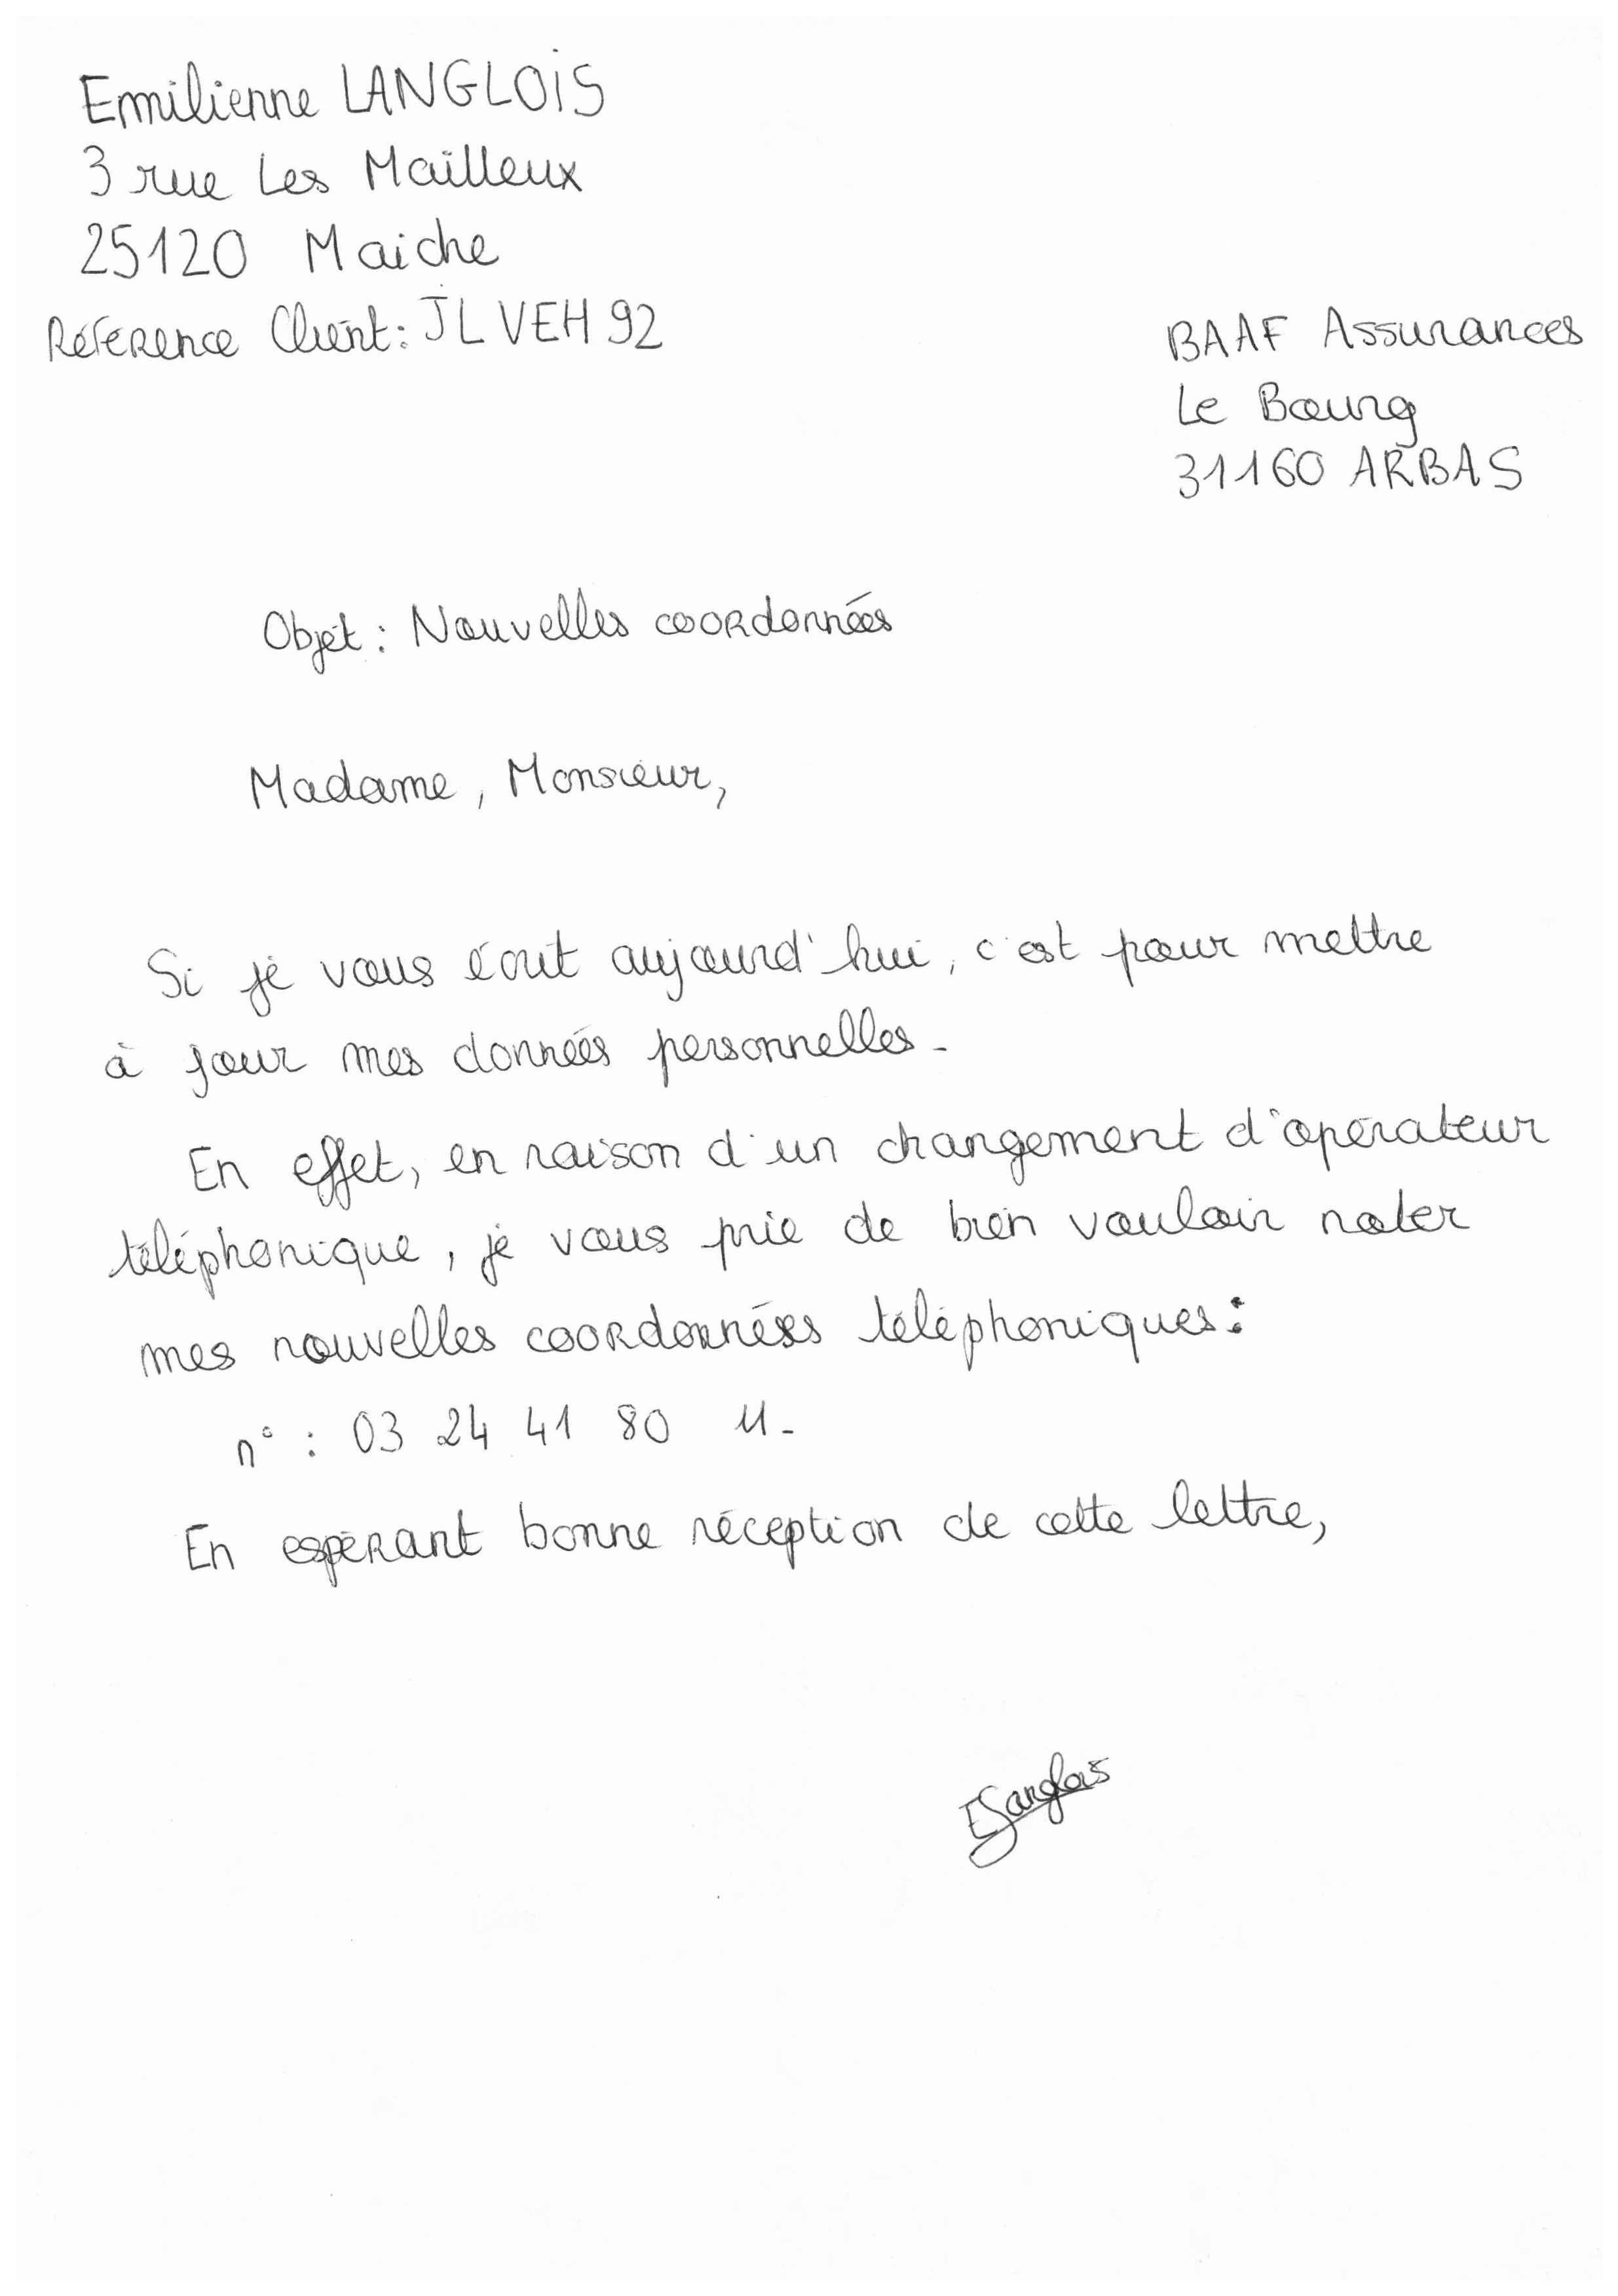 Emilienne LANGLOIS
3 rue Les Mailleux
25120 Maiche
Référence Client: JLVEH92
BAAF Assurances
Le Bourg
31160 ARBAS
Objet : Nouvelles coordonnées
Madame, Monsieur,
Si je vous écrit aujourd'hui, c'est pour mettre
à jour mes données personnelles.
En effet, en raison d'un changement d'opérateur
téléphonique, je vous prie de bien vouloir noter
mes nouvelles coordonnées téléphoniques:
n° : 03 24 41 80 11.
En espérant bonne réception de cette lettre,
ELanglois